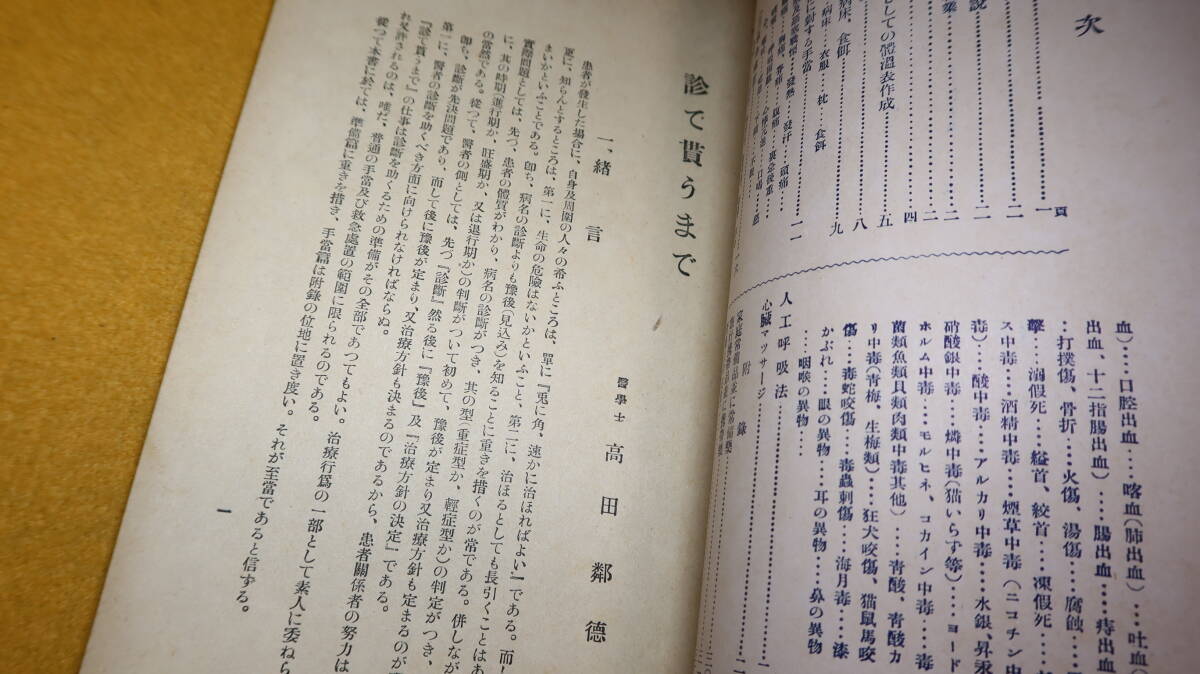 次
頁
一
二
說………二
業………二
二
四
としての體溫表作成………五
八
病床、食餌………九
に對する手當
病床…衣服、枕…食餌
一一
血)…口腔出血…喀血(肺出血)…吐血(
出血、十二指腸出血)…腸出血…痔出血
…打撲傷、骨折…火傷、湯傷…腐蝕…
擊…溺假死…縊首、絞首…凍假死…
ス中毒…酒精中毒…煙草中毒(ニコチン中
毒)…酸中毒…アルカリ中毒…水銀、昇汞
硝酸銀中毒…燐中毒(猫いらず等)…ヨード
ホルム中毒…モルヒネ、コカイン中毒…毒
菌類魚類貝類肉類中毒其他)…青酸、青酸カ
リ中毒(青梅、生梅類)…狂犬咬傷、猫鼠馬咬
傷…毒蛇咬傷…毒蟲刺傷…海月毒…漆
かぶれ…眼の異物…耳の異物…鼻の異物
…咽喉の異物…
人工呼吸法
心臟マッサージ
附錄
診て貰うまで
醫學士 高田鄰德
一、緖言
患者が發生した場合に、自身及周圍の人々の希ふところは、單に『兎に角、速かに治ほればよい』である。而し
更に、知らんとするところは、第一に、生命の危險はないかといふこと、第二に、治ほるとしても長引くことはあ
まいかといふことである。卽ち、病名の診斷よりも豫後(見込み)を知ることに重きを措くのが常である。併しなが
實際問題としては、先つ、患者の體質がわかり、病名の診斷がつき、其の型(重症型か、輕症型か)の判定がつき、
に、其の時期(進行期か、旺盛期か、又は退行期か)の判斷がついて初めて、豫後が定まり又治療方針も定まるのが
の當然である。從つて、醫者の側としては、先づ『診斷』然る後に『豫後』及『治療方針の決定』である。
卽ち、診斷が先決問題であり、而して後に豫後が定まり、又治療方針も決まるのであるから、患者關係者の努力は
第一に、醫者の診斷を助くべき方面に向けられなければならぬ。
『診て貰うまで』の仕事は診斷を助くるための準備がその全部であつてもよい。治療行爲の一部として素人に委ねら
れ又許されるのは、唯だ、普通の手當及び救急處置の範圍に限られるのである。
從つて本書に於ては、準備篇に重きを措き、手當篇は附錄の位地に置き度い。それが至當であると信ずる。
一